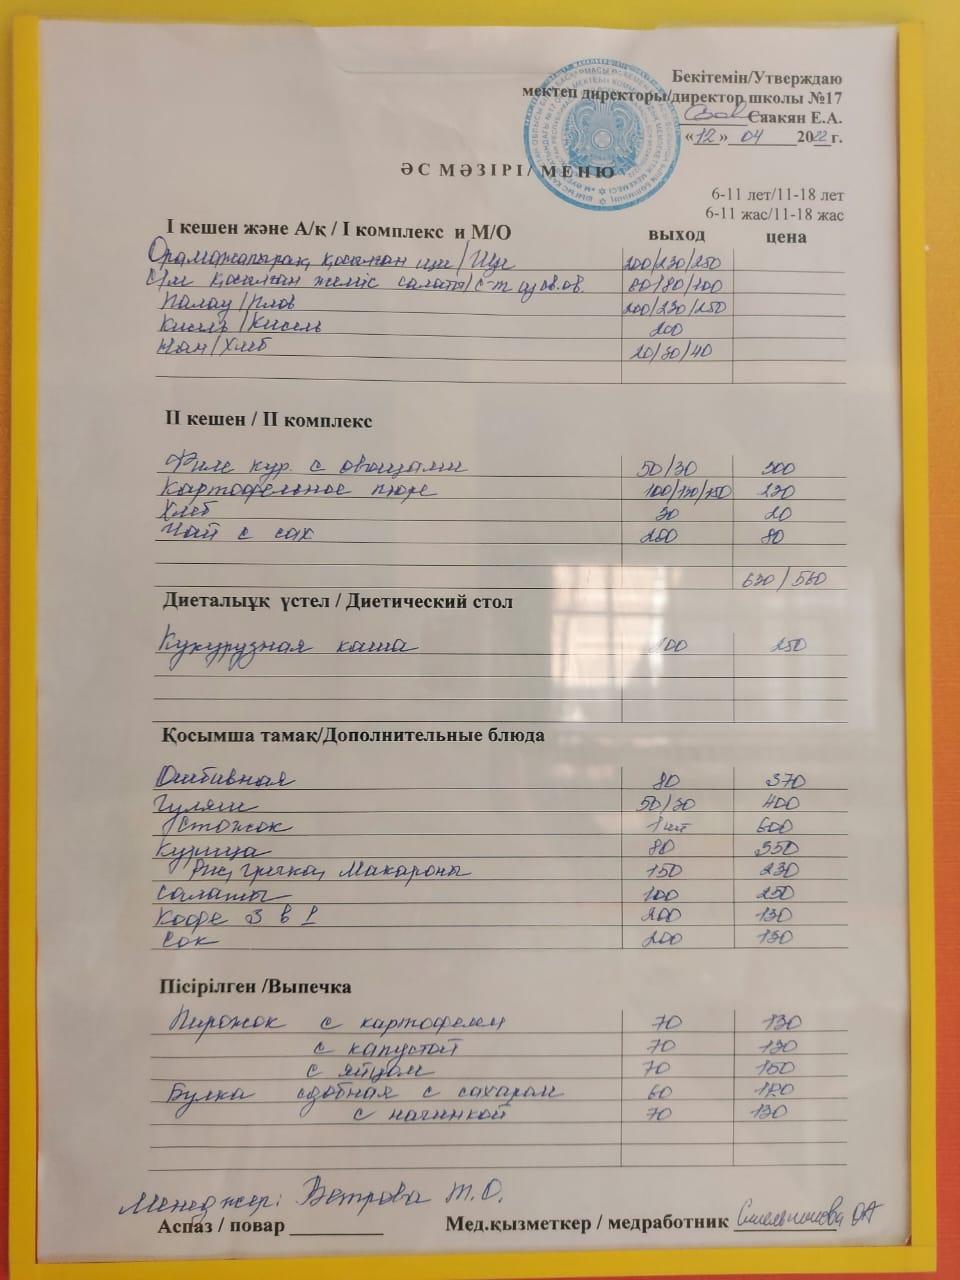 Бекітемін/Утверждаю
мектеп директоры/директор школы №17
Саакян Е.А.
«12» 04 2022 г.
ӘС МӘЗІРІ/ МЕНЮ
6-11 лет/11-18 лет
6-11 жас/11-18 жас
І кешен және А/қ / І комплекс и М/О выход цена
қосылған щи/Щи 200/230/250
қосылған жеміс салаты/с-т из св.ов. 80/80/100
Палау/Плов 200/230/250
Кисель/Кисель 200
Нан/Хлеб 20/30/40
ІІ кешен / ІІ комплекс
Филе кур. с овощами 50/30 300
Картофельное пюре 100/130/150 230
Хлеб 30 20
Чай с сах 200 80
630/560
Диеталыұқ үстел / Диетический стол
Кукурузная каша 200 250
Қосымша тамақ/Дополнительные блюда
Отбивная 80 370
Гуляш 50/30 400
Стожок 1 шт 600
Курица 80 350
Рис, гречка, Макароны 150 230
Салаты 100 250
Кофе 3 в 1 200 130
Сок 200 130
Пісірілген /Выпечка
Пирожок с картофелем 70 130
с капустой 70 130
с яйцом 70 150
Булка сдобная с сахаром 60
с начинкой 70 130
Менеджер: Ветрова Т.О.
Аспаз / повар Мед.қызметкер / медработник